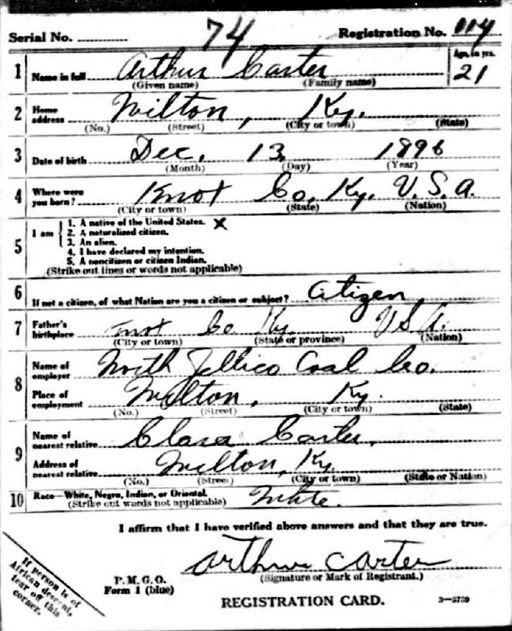 Serial No. 74 Registration No. 114
1 Name in full Arthur Carter Age, in yrs.
(Given name) (Family name) 21
2 Home address Wilton, Ky.
(No.) (Street) (City or town) (State)
3 Date of birth Dec. 13 1896
(Month) (Day) (Year)
4 Where were you born? Knot Co, Ky. U.S.A.
(City or town) (State) (Nation)
5 I am
1. A native of the United States. X
2. A naturalized citizen.
3. An alien.
4. I have declared my intention.
5. A noncitizen or citizen Indian.
(Strike out lines or words not applicable)
6 If not a citizen, of what Nation are you a citizen or subject? Citizen
7 Father's birthplace Knot Co Ky. U S A.
(City or town) (State or province) (Nation)
8 Name of employer North Jellico Coal Co.
Place of employment Wilton, Ky.
(No.) (Street) (City or town) (State)
9 Name of nearest relative Clara Carter,
Address of nearest relative Wilton, Ky
(No.) (Street) (City or town) (State or Nation)
10 Race—White, Negro, Indian, or Oriental. White.
(Strike out words not applicable)
I affirm that I have verified above answers and that they are true.
Arthur Carter
P. M. G. O. (Signature or Mark of Registrant.)
Form 1 (blue)
REGISTRATION CARD. 3—5739
If person is of
African descent,
tear off this
corner.